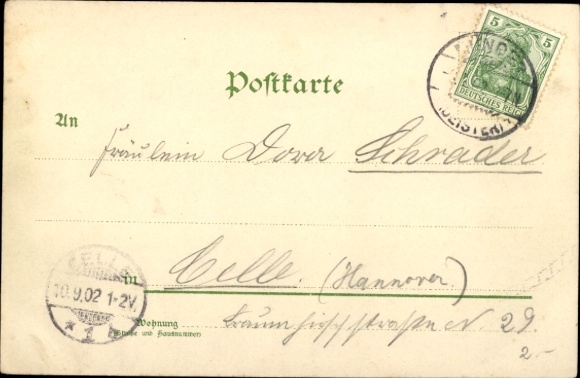 5 5
DEUTSCHES REICH
Postkarte
An
Fräulein Dora Schrader
in Celle. (Hannover)
CELLE
10.9.02 1-2V.
* 1 b
Wohnung
(Straße und Hausnummer)
N. 29.
2.-